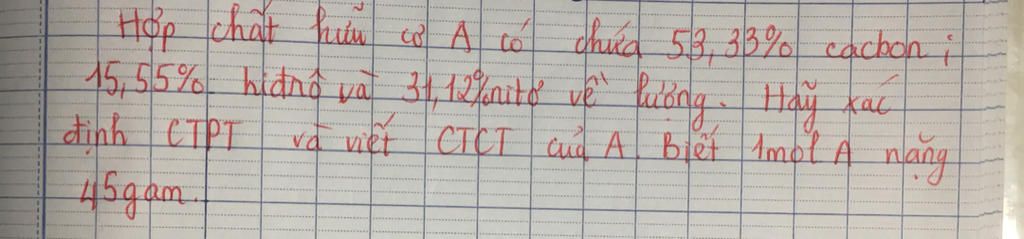 Hợp chất hữu cơ A có chứa 53,33% cacbon;
15,55% hiđrô và 31,12% nitơ về lượng. Hãy xác
định CTPT và viết CTCT của A. Biết 1mol A nặng
45gam.